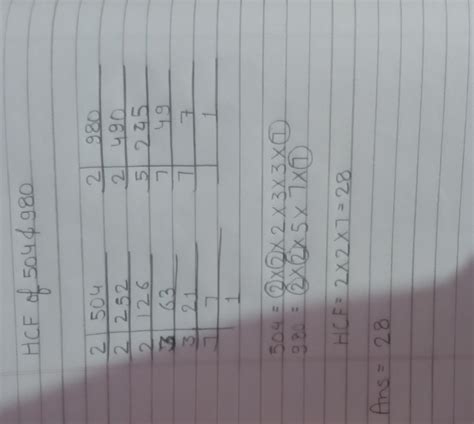 HCF of 504 & 980
2 504
2 252
2 126
3 63
3 21
7 7
1
2 980
2 490
5 245
7 49
7 7
1
504 = 2×2×2×3×3×7
980 = 2×2×5×7×7
HCF = 2×2×7 = 28
Ans = 28